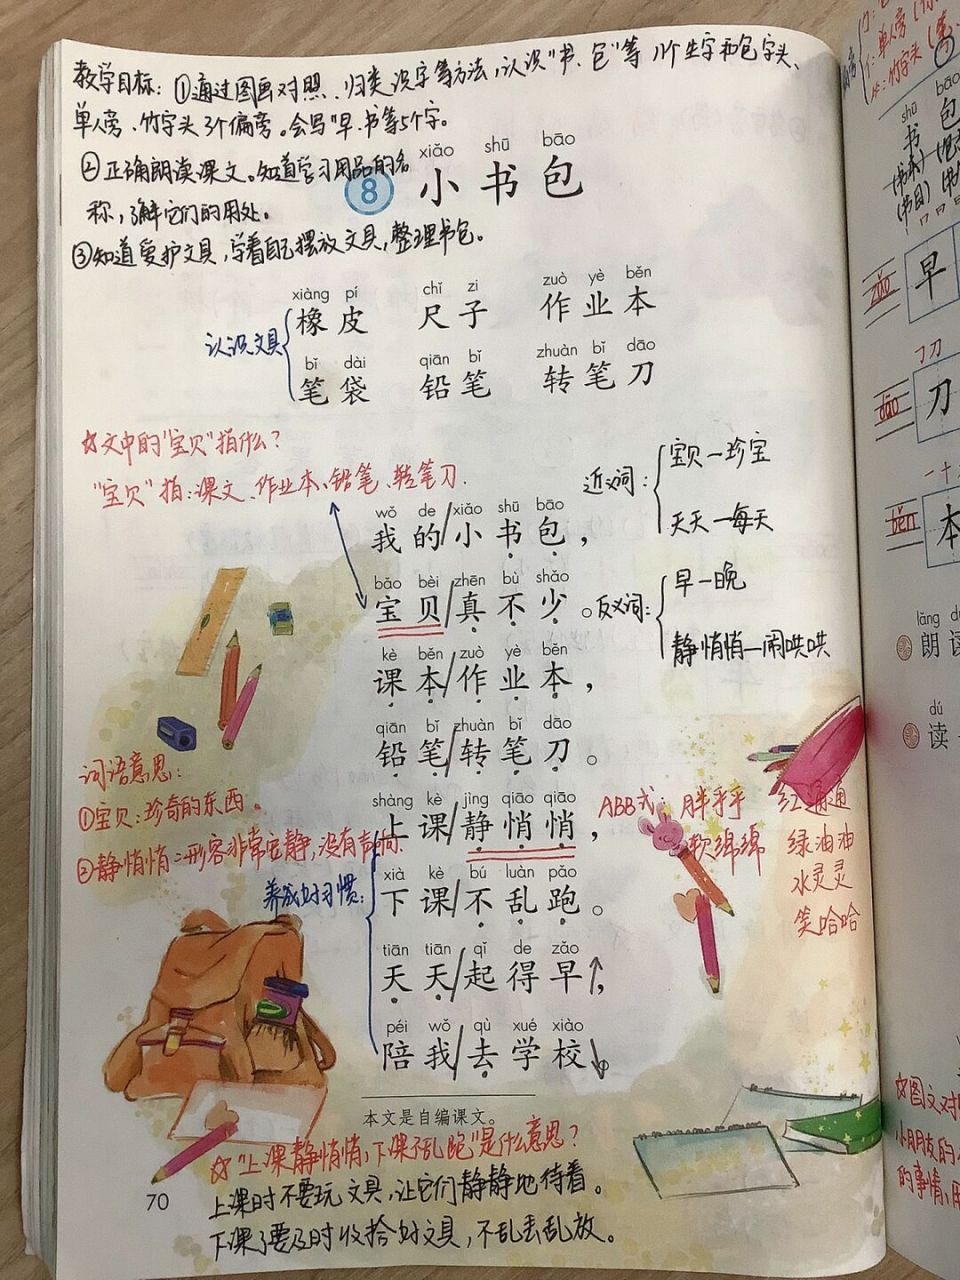 教学目标：①通过图画对照、归类识字等方法，认识“书、包”等11个生字和包字头、
单人旁、竹字头3个偏旁。会写“早、书”等5个字。
②正确朗读课文。知道学习用品的名
称，了解它们的用处。
③知道爱护文具，学着自己摆放文具，整理书包。
xiǎo shū bāo
8 小书包
xiàng pí chǐ zi zuò yè běn
橡皮 尺子 作业本
认识文具
bǐ dài qiān bǐ zhuàn bǐ dāo
笔袋 铅笔 转笔刀
☆文中的“宝贝”指什么？
“宝贝”指：课文、作业本、铅笔、转笔刀.
近义词：
宝贝—珍宝
天天—每天
反义词：
早—晚
静悄悄—闹哄哄
wǒ de xiǎo shū bāo
我的/小书包，
bǎo bèi zhēn bù shǎo
宝贝/真不少。
kè běn zuò yè běn
课本/作业本，
qiān bǐ zhuàn bǐ dāo
铅笔/转笔刀。
shàng kè jìng qiāo qiāo
上课/静悄悄，
xià kè bú luàn pǎo
下课/不乱跑。
tiān tiān qǐ de zǎo
天天/起得早，
péi wǒ qù xué xiào
陪我/去学校。
词语意思：
①宝贝：珍奇的东西。
②静悄悄：形容非常安静，没有声响.
养成好习惯：
ABB式：胖乎乎 红通通
软绵绵 绿油油
水灵灵
笑哈哈
本文是自编课文。
☆“上课静悄悄，下课不乱跑”是什么意思？
上课时不要玩文具，让它们静静地待着。
下课了要及时收拾好文具，不乱丢乱放。
70
单人旁
竹字头
shū bāo
书 包
(书本)
(书目)
zǎo 早
dāo 刀
běn 本
朗读
dú
读
☆图文对
小朋友的
的事情，用